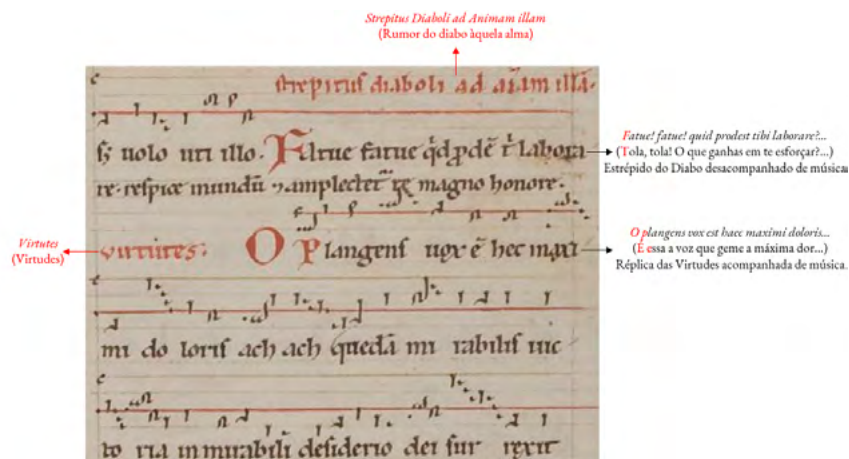 Strepitus Diaboli ad Animam illam
(Rumor do diabo àquela alma)
strepitus diaboli ad aīam illā.
sʒ uolo uti illo. Fatue fatue qͥd ꝓdē t̄ labora
re. respice mundū ⁊ amplectet̄ te magno honore.
uirtutes. O Plangens uox ē hec maxi
mi do loris ach ach quedā mi rabilis uic
to ria in mirabili desiderio dei sur rexit
Fatue! fatue! quid prodest tibi laborare?...
(Tola, tola! O que ganhas em te esforçar?...)
Estrépido do Diabo desacompanhado de música
Virtutes
(Virtudes)
O plangens vox est haec maximi doloris...
(É essa a voz que geme a máxima dor...)
Réplica das Virtudes acompanhada de música.